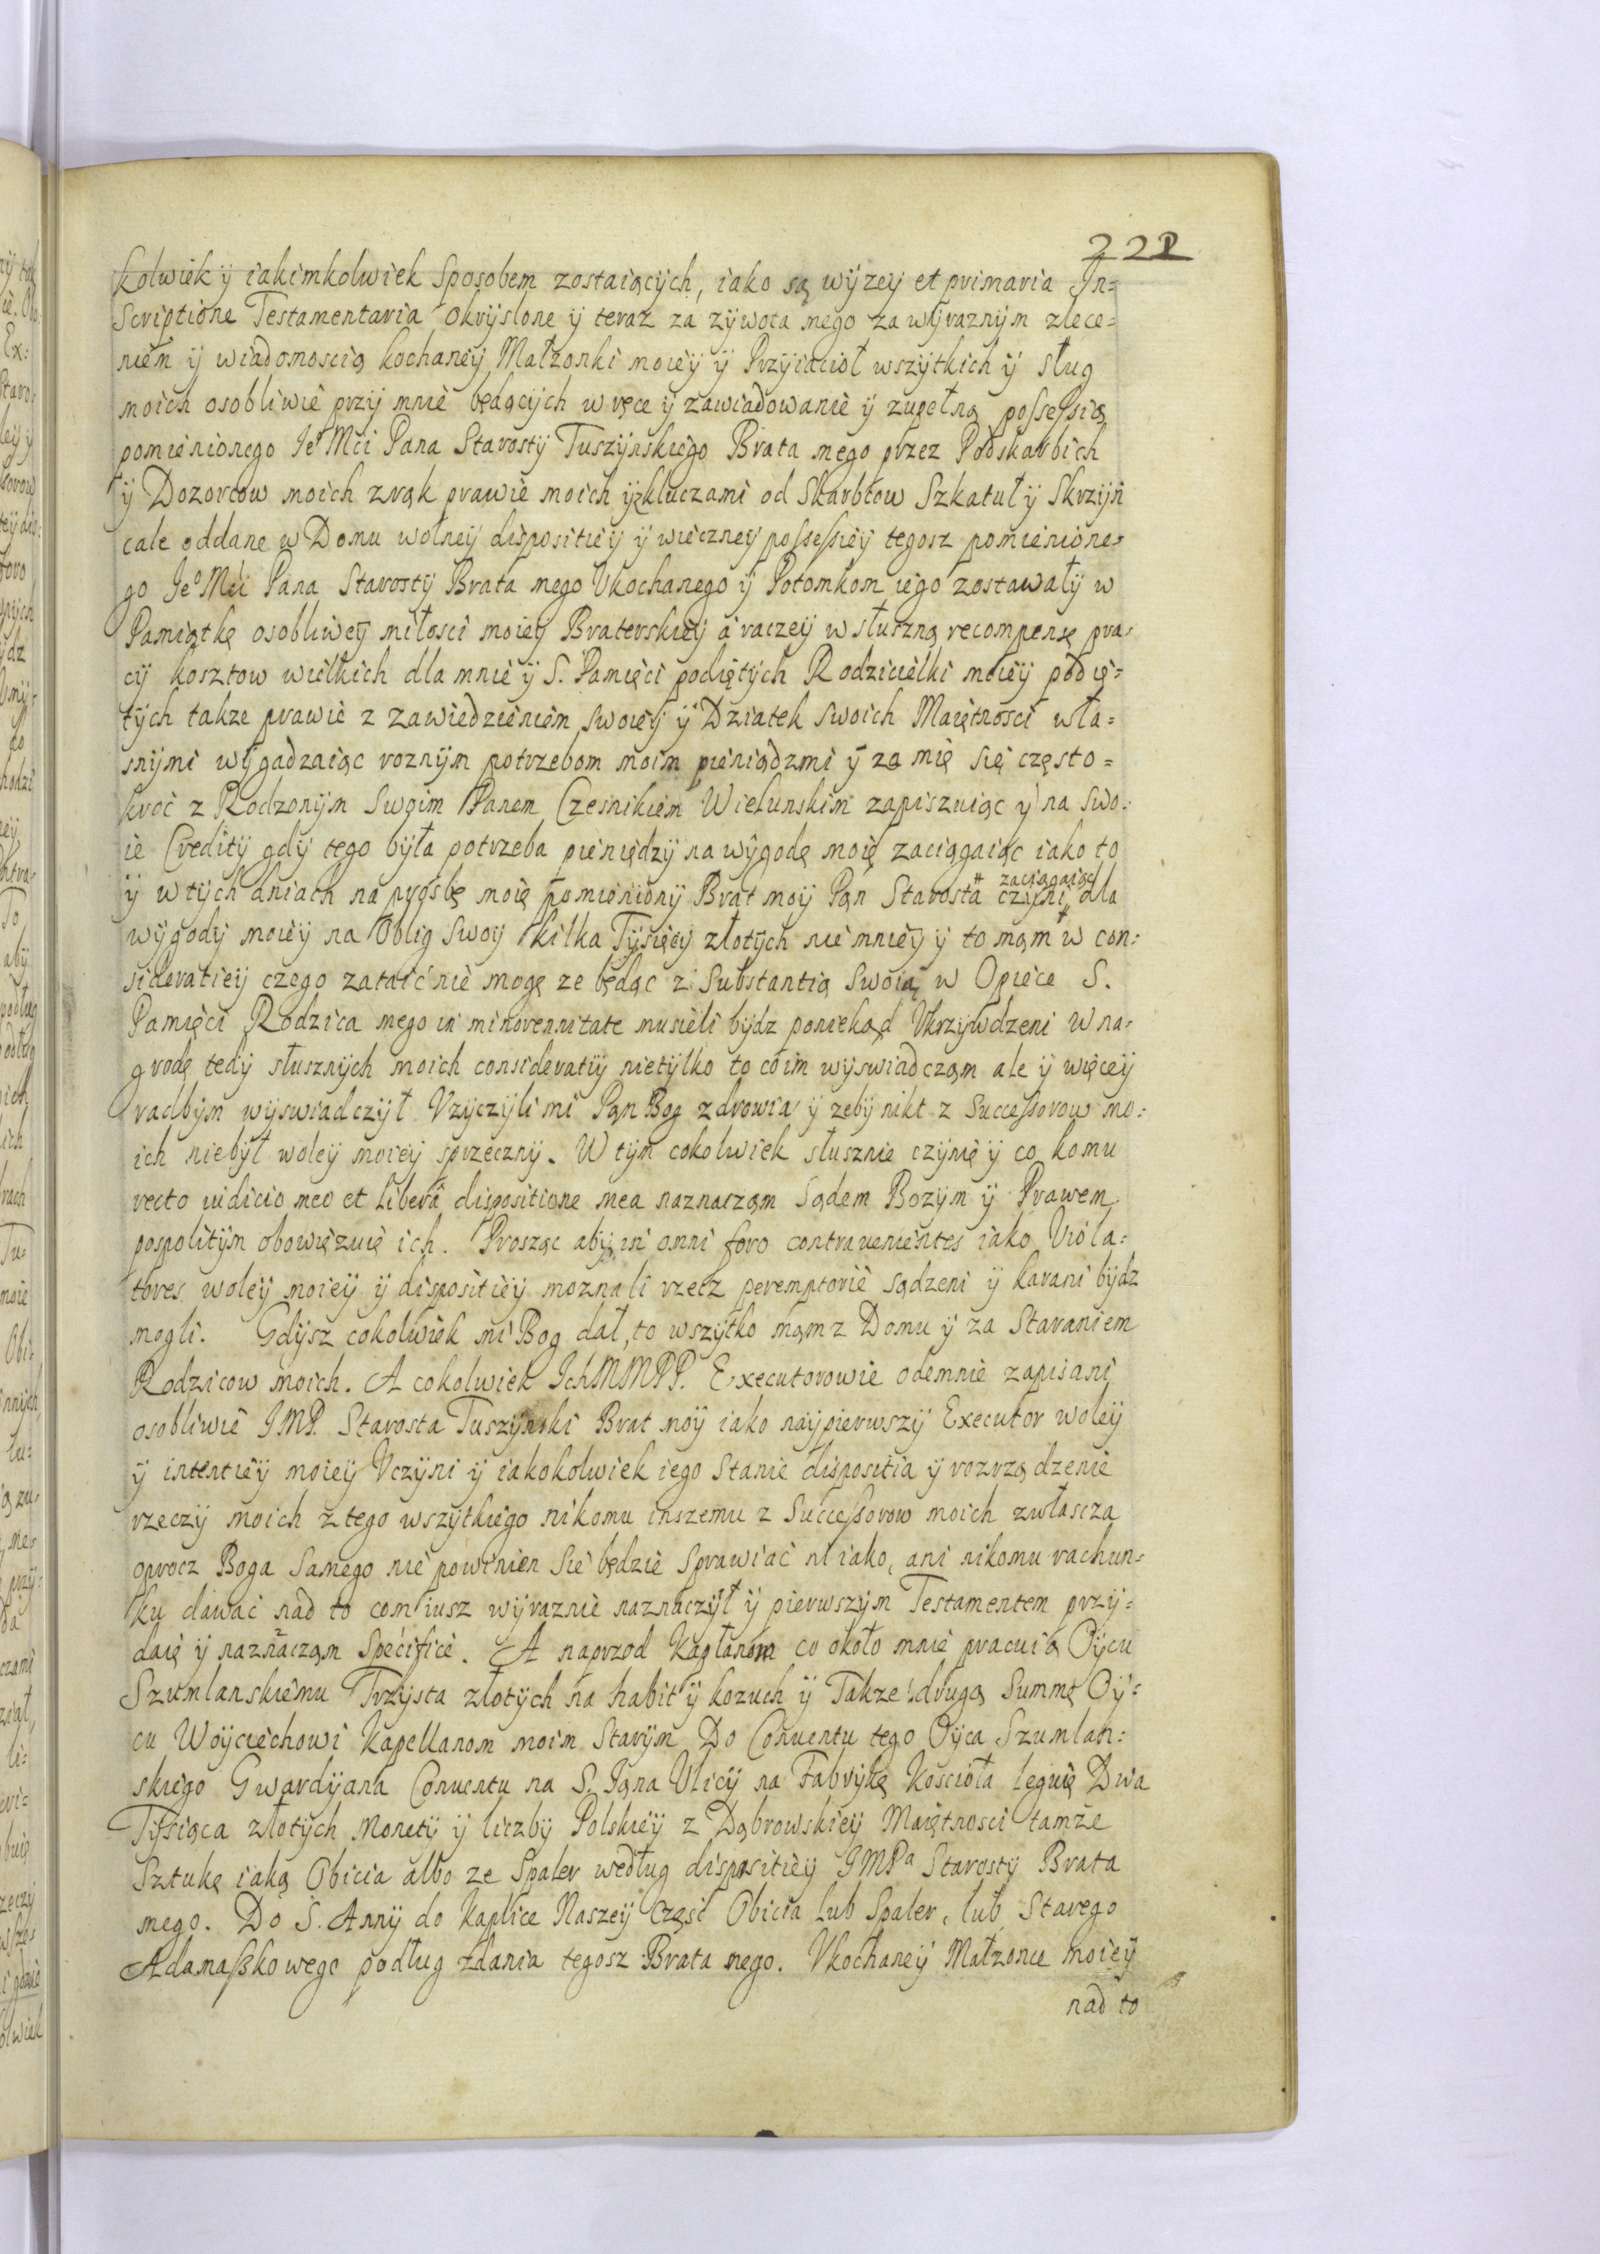 221
kolwiek ÿ iakimkolwiek Sposobem zostaiącÿch, iako są wÿzeÿ et primaria In=
Scriptione Testamentaria okrÿslone ÿ teraz za zÿwota mego za wÿraznÿm zlece=
niem ÿ wiadomoscią kochaneÿ Małzonki moieÿ ÿ Przÿiacioł wszÿtkich ÿ sług
moich osobliwie przÿ mnie będącÿch w ręce ÿ zawiadowanie ÿ zupełną possessią
pomienionego Ieº Mći Pana Starostÿ Tuszÿnskiego Brata mego przez Podskarbich
ÿ Dozorcow moich z rąk prawie moich ÿ z kluczami od Skarbcow Szkatuł ÿ Skrzÿn
cale oddane w Domu wolneÿ dispositieÿ ÿ wieczneÿ possessieÿ tegosz pomienione=
go Ieº Mći Pana Starostÿ Brata mego Vkochanego ÿ Potomkom iego zostawałÿ w
Pamiątkę osobliweÿ miłosci moieÿ Braterskieÿ a raczeÿ w słuszną recompensę pra=
cÿ kosztow wielkich dla mnie ÿ S. Pamięci podiętÿch Rodzicielki moieÿ podię=
tÿch takze prawie z zawiedzieniem swoieÿ ÿ Dziatek swoich Maiętnosci wła=
snÿmi wÿgadzaiąc roznÿm potrzebom moim pieniądzmi ÿ za mię się często=
kroć z Rodzonÿm Swoim Panem Czesnikiem Wielunskim zapisuiąc ÿ na swo=
ie Creditÿ gdÿ tego była potrzeba pieniędzÿ na wÿgodę moię zaciągaiąc iako to
ÿ w tÿch dniach na prosbę moię pomienionÿ Brat moÿ Pan Starosta # zaciągaiąc czÿni # dla
wÿgodÿ moieÿ na Oblig swoÿ kilka Tÿsięcÿ złotÿch nie mnieÿ ÿ to mam w con=
sideratieÿ czego zataić nie mogę ze będąc z Substantią Swoią w Opiece S.
Pamięci Rodzica mego in minorennitate musieli bÿdz poniekąd Vkrzÿwdzeni w na=
grodę tedÿ słusznÿch moich consideratiÿ nietÿlko to co im wÿswiadczam ale ÿ więceÿ
radbÿm wÿswiadczÿł Vzÿczÿli mi Pan Bog zdrowia ÿ zebÿ nikt z Successorow mo=
ich niebÿł woleÿ moieÿ sprzecznÿ. W tÿm cokolwiek słusznie czÿnię ÿ co komu
recto iudicio meo et liberâ dispositione mea naznaczam Sądem Bozÿm ÿ Prawem
pospolitÿm obowięzuię ich. Prosząc abÿ in omni foro contravenientes iako Viola=
tores woleÿ moieÿ ÿ dispositieÿ moznali rzecz peremptorie sądzeni ÿ karani bÿdz
mogli. Gdÿsz cokolwiek mi Bog dał, to wszÿtko mam z Domu ÿ za Staraniem
Rodzicow moich. A cokolwiek IchMMPP. Executorowie odemnie zapisani
osobliwie IMP. Starosta Tuszÿnski Brat moÿ iako naÿpierwszÿ Executor woleÿ
ÿ intentieÿ moieÿ Vczÿni ÿ iakokolwiek iego Stanie dispositia ÿ rozrządzenie
rzeczÿ moich z tego wszÿtkiego nikomu inszemu z Successorow moich zwłascza
oprocz Boga Samego nie powinien Sie będzie Sprawiać niiako, ani nikomu rachun=
ku dawać nad to com iusz wÿraznie naznaczÿł ÿ pierwszÿm Testamentem przÿ=
daię ÿ naznaczam Specifice. A naprzod Kapłanom co około mnie pracuią Oÿcu
Szumlanskiemu Trzÿsta złotÿch na habit ÿ kozuch ÿ Takze drugą Summę Oÿ=
cu Woÿciechowi Kapellanom moim Starÿm Do Conuentu tego Oÿca Szumlan=
skiego Gwardÿana Conuentu na S. Iana Vlicÿ na Fabrÿkę Koscioła leguię Dwa
Tÿsiąca złotÿch Monetÿ ÿ liczbÿ Polskieÿ z Dąbrowskieÿ Maiętnosci tamże
Sztukę iaką Obicia albo ze Spaler według dispositieÿ IMPª Starostÿ Brata
mego. Do S. Annÿ do Kaplice Naszeÿ Część Obicia lub Spaler, lub Starego
Adamaszkowego podług zdania tegosz Brata mego. Vkochaneÿ Małzonce moieÿ
nad to